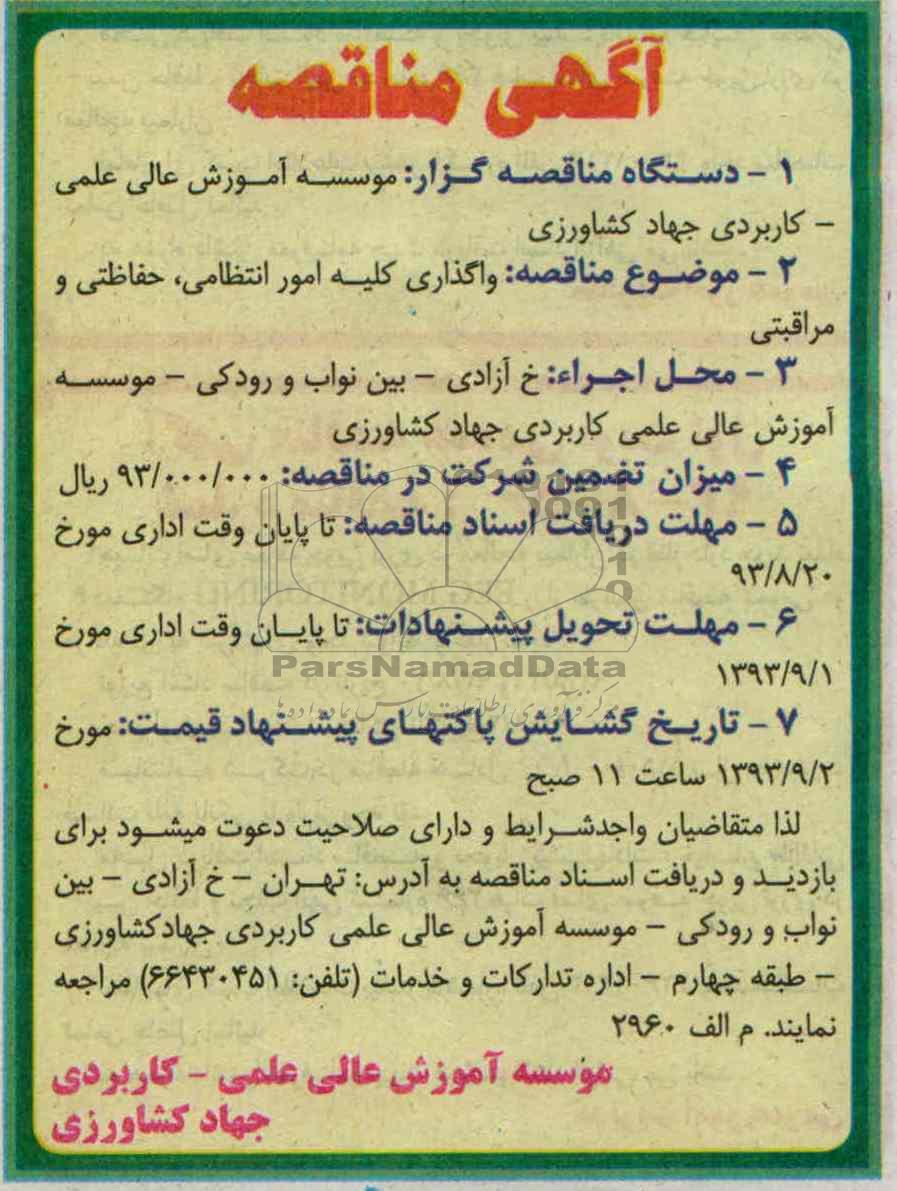 آگهی مناقصه
۱ - دستگاه مناقصه گزار: موسسه آموزش عالی علمی
- کاربردی جهاد کشاورزی
۲ - موضوع مناقصه: واگذاری کلیه امور انتظامی، حفاظتی و
مراقبتی
۳ - محل اجراء: خ آزادی - بین نواب و رودکی - موسسه
آموزش عالی علمی کاربردی جهاد کشاورزی
۴ - میزان تضمین شرکت در مناقصه: ۹۳/۰۰۰/۰۰۰ ریال
۵ - مهلت دریافت اسناد مناقصه: تا پایان وقت اداری مورخ
۹۳/۸/۲۰
۶ - مهلت تحویل پیشنهادات: تا پایان وقت اداری مورخ
۱۳۹۳/۹/۱
ParsNamadData
۷ - تاریخ گشایش پاکتهای پیشنهاد قیمت: مورخ
۱۳۹۳/۹/۲ ساعت ۱۱ صبح
لذا متقاضیان واجدشرایط و دارای صلاحیت دعوت میشود برای
بازدید و دریافت اسناد مناقصه به آدرس: تهران - خ آزادی - بین
نواب و رودکی - موسسه آموزش عالی علمی کاربردی جهادکشاورزی
- طبقه چهارم - اداره تدارکات و خدمات (تلفن: ۶۶۴۳۰۴۵۱) مراجعه
نمایند. م الف ۲۹۶۰
موسسه آموزش عالی علمی - کاربردی
جهاد کشاورزی